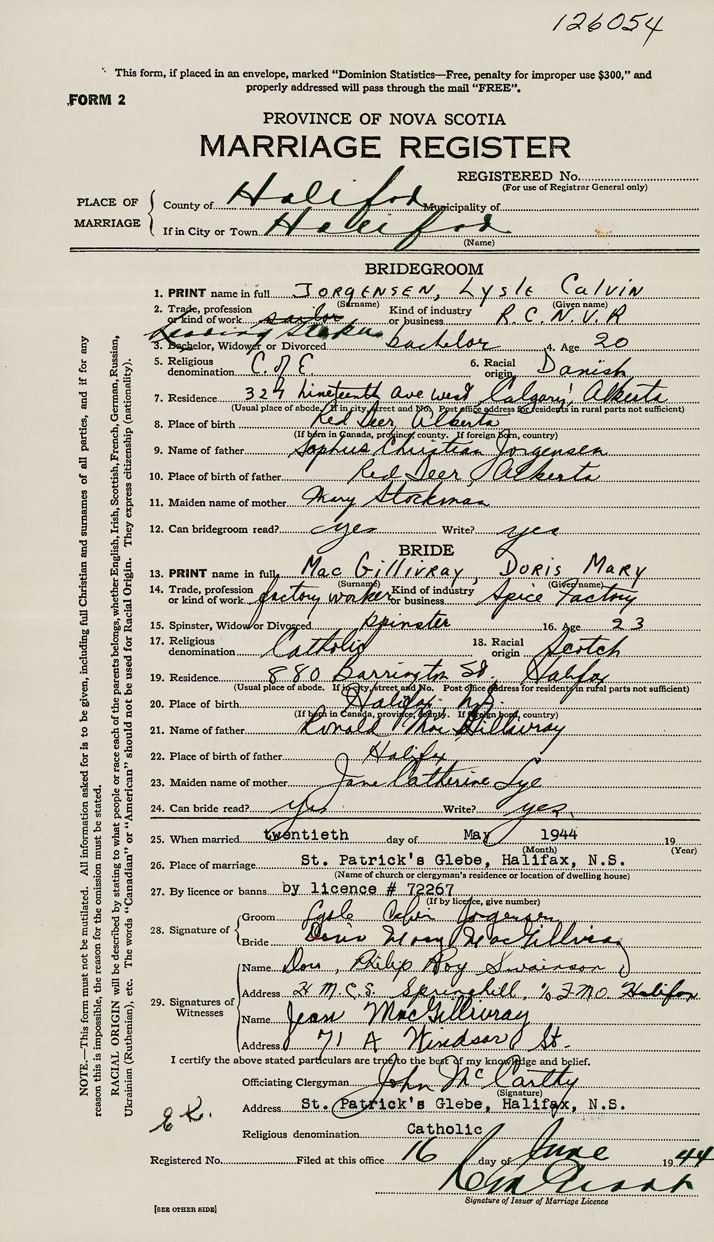 126054
This form, if placed in an envelope, marked "Dominion Statistics—Free, penalty for improper use $300," and
properly addressed will pass through the mail "FREE".
FORM 2
PROVINCE OF NOVA SCOTIA
MARRIAGE REGISTER
REGISTERED No.
(For use of Registrar General only)
PLACE OF MARRIAGE
County of Halifax Municipality of
If in City or Town Halifax
(Name)
BRIDEGROOM
1. PRINT name in full JORGENSEN, Lysle Calvin
(Surname) (Given name)
2. Trade, profession or kind of work sailor Kind of industry or business R.C.N.V.R
Leading Stoker
3. Bachelor, Widower or Divorced bachelor 4. Age 20
5. Religious denomination C. of E. 6. Racial origin Danish
7. Residence 327 Nineteenth Ave west Calgary, Alberta
(Usual place of abode. If in city, street and No. Post office address for residents in rural parts not sufficient)
8. Place of birth Red Deer, Alberta
(If born in Canada, province, county. If foreign born, country)
9. Name of father Sophus Christian Jorgensen
10. Place of birth of father Red Deer, Alberta
11. Maiden name of mother Mary Stockman
12. Can bridegroom read? yes Write? yes
BRIDE
13. PRINT name in full MacGillivray, DORIS MARY
(Surname) (Given name)
14. Trade, profession or kind of work factory worker Kind of industry or business Spice Factory
15. Spinster, Widow or Divorced spinster 16. Age 23
17. Religious denomination Catholic 18. Racial origin Scotch
19. Residence 880 Barrington St, Halifax
(Usual place of abode. If in city, street and No. Post office address for residents in rural parts not sufficient)
20. Place of birth Halifax, N.S.
(If born in Canada, province, county. If foreign born, country)
21. Name of father Ronald MacGillivray
22. Place of birth of father Halifax
23. Maiden name of mother Jane Catherine Lye
24. Can bride read? yes Write? yes
25. When married twentieth day of May 1944 19
(Month) (Year)
26. Place of marriage St. Patrick's Glebe, Halifax, N.S.
(Name of church or clergyman's residence or location of dwelling house)
27. By licence or banns by licence # 72267
(If by licence, give number)
28. Signature of
Groom Lysle Calvin Jorgensen
Bride Doris Mary MacGillivray
29. Signatures of Witnesses
Name Philip Roy Swainson
Address H.M.C.S. Springhill, % F.M.O. Halifax
Name Jean MacGillivray
Address 71 A Windsor St.
I certify the above stated particulars are true to the best of my knowledge and belief.
Officiating Clergyman John McCarthy
(Signature)
Address St. Patrick's Glebe, Halifax, N.S.
Religious denomination Catholic
Registered No. Filed at this office 16 day of June 1944
Signature of Issuer of Marriage Licence
[SEE OTHER SIDE]
NOTE.—This form must not be mutilated. All information asked for is to be given, including full Christian and surnames of all parties, and if for any
reason this is impossible, the reason for the omission must be stated.
RACIAL ORIGIN will be described by stating to what people or race each of the parents belongs, whether English, Irish, Scottish, French, German, Russian,
Ukrainian (Ruthenian), etc. The words "Canadian" or "American" should not be used for Racial Origin. They express citizenship (nationality).